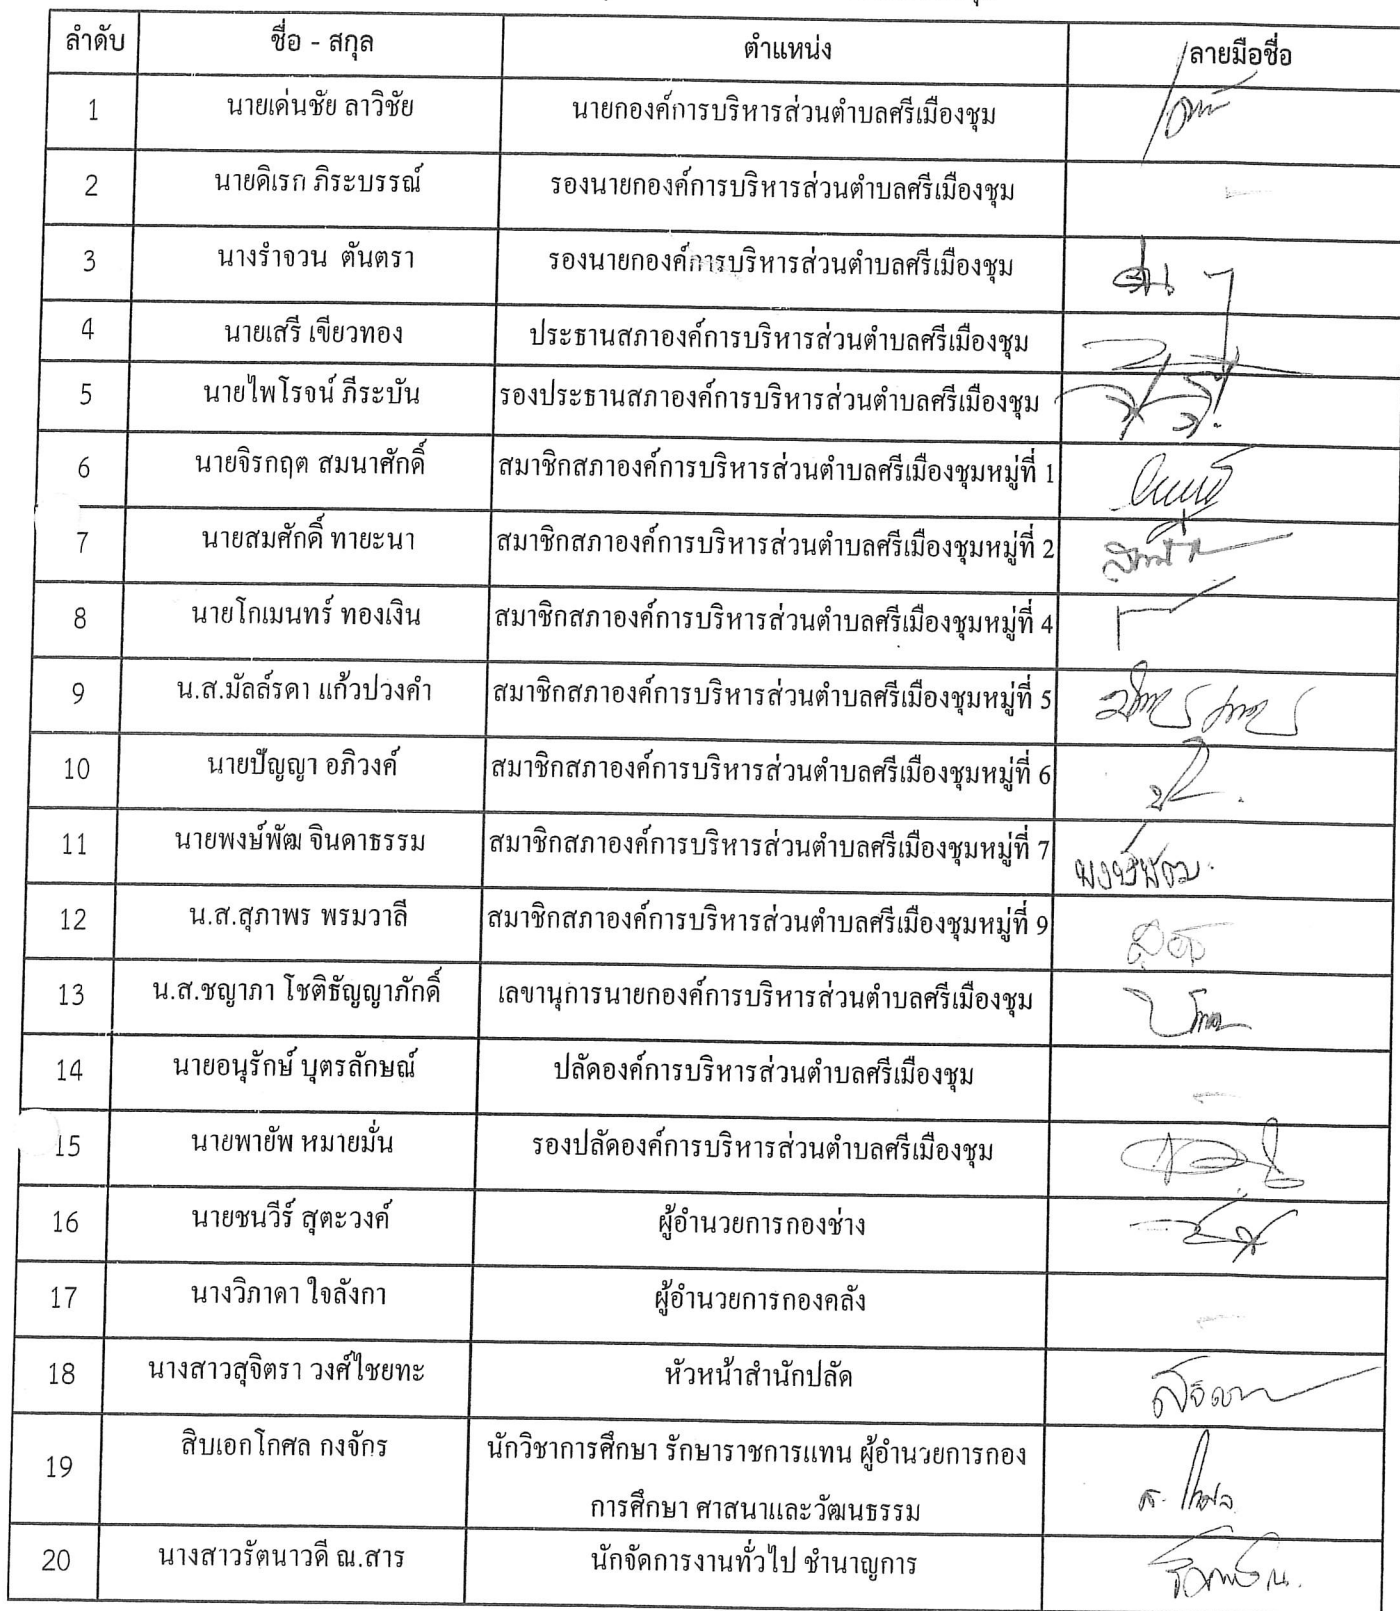 ลำดับ ชื่อ - สกุล ตำแหน่ง ลายมือชื่อ
1 นายเด่นชัย ลาวิชัย นายกองค์การบริหารส่วนตำบลศรีเมืองชุม
2 นายดิเรก ภิระบรรณ์ รองนายกองค์การบริหารส่วนตำบลศรีเมืองชุม -
3 นางรำจวน ตันตรา รองนายกองค์การบริหารส่วนตำบลศรีเมืองชุม
4 นายเสรี เขียวทอง ประธานสภาองค์การบริหารส่วนตำบลศรีเมืองชุม
5 นายไพโรจน์ ภีระบัน รองประธานสภาองค์การบริหารส่วนตำบลศรีเมืองชุม
6 นายจิรกฤต สมนาศักดิ์ สมาชิกสภาองค์การบริหารส่วนตำบลศรีเมืองชุมหมู่ที่ 1
7 นายสมศักดิ์ ทายะนา สมาชิกสภาองค์การบริหารส่วนตำบลศรีเมืองชุมหมู่ที่ 2
8 นายโกเมนทร์ ทองเงิน สมาชิกสภาองค์การบริหารส่วนตำบลศรีเมืองชุมหมู่ที่ 4
9 น.ส.มัลล์รดา แก้วปวงคำ สมาชิกสภาองค์การบริหารส่วนตำบลศรีเมืองชุมหมู่ที่ 5
10 นายปัญญา อภิวงค์ สมาชิกสภาองค์การบริหารส่วนตำบลศรีเมืองชุมหมู่ที่ 6
11 นายพงษ์พัฒ จินดาธรรม สมาชิกสภาองค์การบริหารส่วนตำบลศรีเมืองชุมหมู่ที่ 7
12 น.ส.สุภาพร พรมวาลี สมาชิกสภาองค์การบริหารส่วนตำบลศรีเมืองชุมหมู่ที่ 9
13 น.ส.ชญาภา โชติธัญญาภักดิ์ เลขานุการนายกองค์การบริหารส่วนตำบลศรีเมืองชุม
14 นายอนุรักษ์ บุตรลักษณ์ ปลัดองค์การบริหารส่วนตำบลศรีเมืองชุม -
15 นายพายัพ หมายมั่น รองปลัดองค์การบริหารส่วนตำบลศรีเมืองชุม
16 นายชนวีร์ สุตะวงค์ ผู้อำนวยการกองช่าง
17 นางวิภาดา ใจลังกา ผู้อำนวยการกองคลัง -
18 นางสาวสุจิตรา วงศ์ไชยทะ หัวหน้าสำนักปลัด
19 สิบเอกโกศล กงจักร นักวิชาการศึกษา รักษาราชการแทน ผู้อำนวยการกอง
การศึกษา ศาสนาและวัฒนธรรม
20 นางสาวรัตนาวดี ณ.สาร นักจัดการงานทั่วไป ชำนาญการ